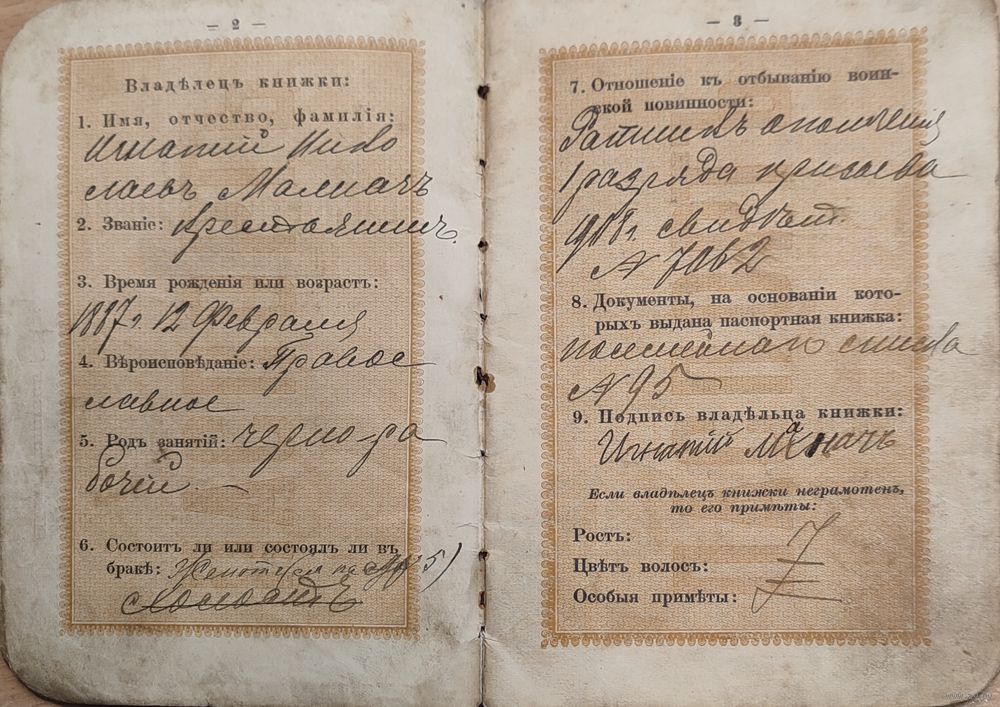 — 2 —
Владѣлецъ книжки:
1. Имя, отчество, фамилія:
Игнатій Нико
лаевъ Малначъ
2. Званіе: Крестьянинъ.
3. Время рожденія или возрастъ:
1887 г. 12 Февраля
4. Вѣроисповѣданіе: Право
славное
5. Родъ занятій: черно-ра
бочій. —
6. Состоитъ ли или состоялъ ли въ
бракѣ: Женотъ 5)
— 3 —
7. Отношеніе къ отбыванію воин-
ской повинности:
Ратникъ ополченія
1 разряда призыва
1908 г. свидѣт.
№ 7062
8. Документы, на основаніи кото-
рыхъ выдана паспортная книжка:
посемейнаго списка
№ 95
9. Подпись владѣльца книжки:
Игнатій
Если владѣлецъ книжки неграмотенъ,
то его примѣты:
Ростъ:
Цвѣтъ волосъ:
Особыя примѣты: